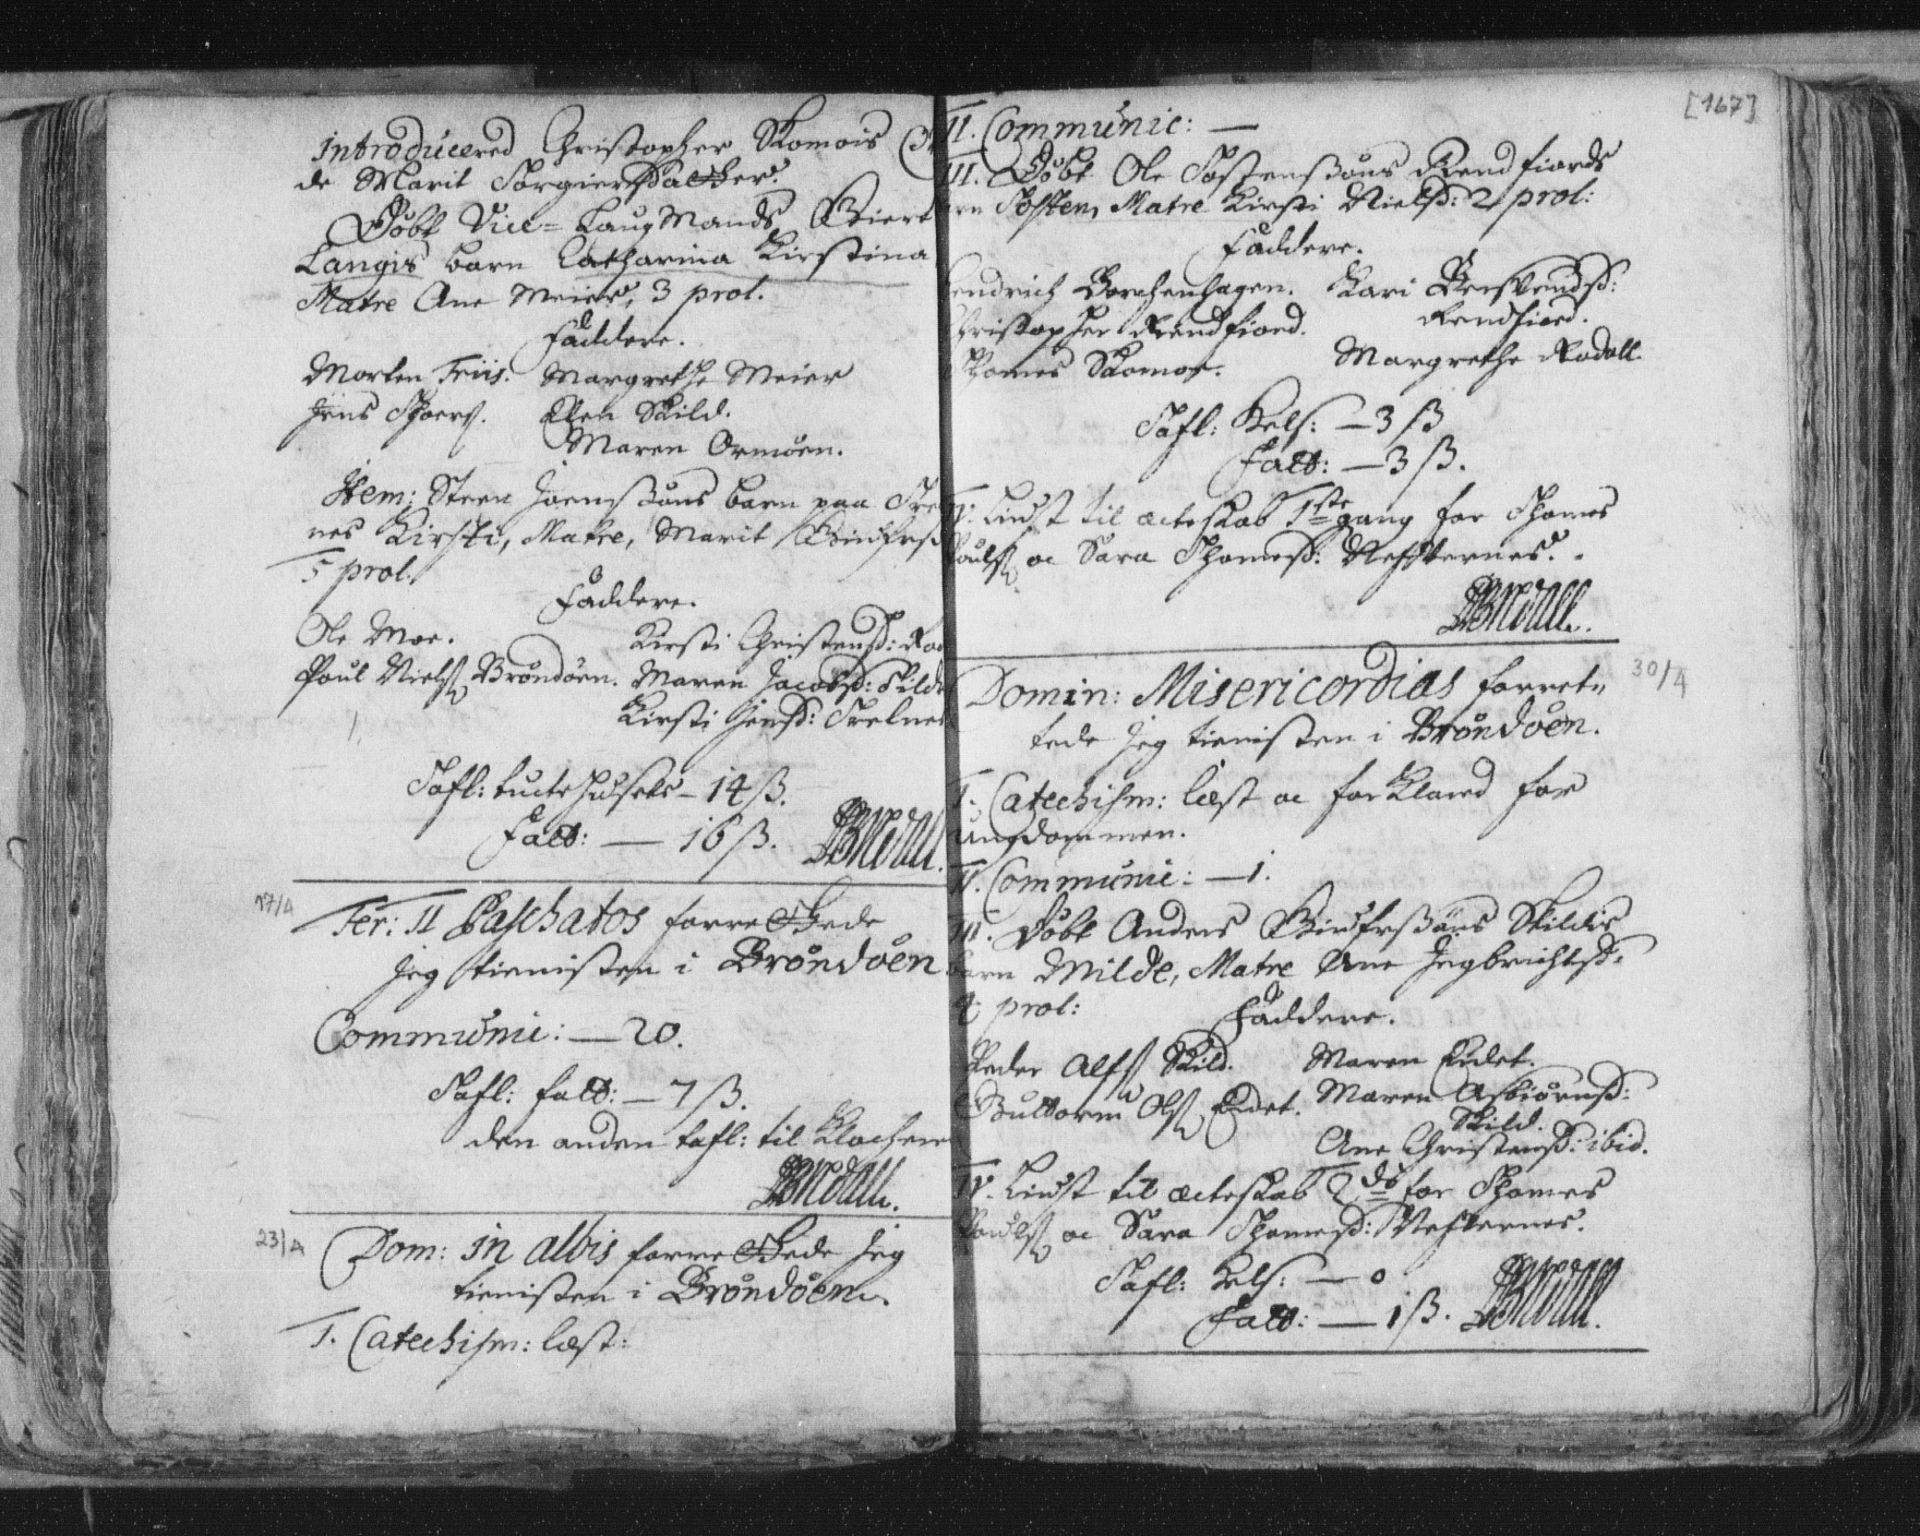 introducered Christopher Skomois
de Marit Torgiersdatter.
Döbt Vice-LaugMands
Langis barn Catharina Kirstina
Matre Ane Meier, 3 prol.
Faddere.
Morten Friis. Margrethe Meier
Jens Skild.
Maren Ormöen.
Item: Steen Joensöns barn paa
nes Kirsti, Matre, Marit
5 prol.
Faddere.
Ole Moe. Kirsti Christensd:
Poul Niels Bröndöen. Maren Jacobsd:
Kirsti Jensd:
Tafl: tuctehusets - 14 ß.
Fatt: — 16 ß.
17/4
Fer: II Paschatos forrettede
Jeg tienisten i Bröndöen
Communic: — 20.
Tafl: fatt: — 7 ß.
den anden tafl: til Klochen
23/4
Dom: in albis forrettede Jeg
tienisten i Bröndöen.
I. Catechism: læst:
[167]
II. Communic: —
III. Döbt Ole Tostensöns Rendfiords
barn Tosten, Matre Kirsti Nielsd: 2 prol:
Faddere.
Hendrich Borchenhagen. Kari
Christopher Rendfiord. Rendfiord.
Thomes Skomoe. Margrethe
Tafl: Hels: — 3 ß
Fatt: — 3 ß.
IV. Liust til ecteskab 1ste gang for Thomes
Pouls oc Sara Thomesd:
30/4
Domin: Misericordias forret-
tede Jeg tienisten i Bröndöen.
I. Catechism: læst oc forklared for
Ungdommen.
II. Communic: — 1.
III. Döbt Anders Skildis
barn Milde, Matre Ane
prol: Faddere.
Peder Alfs Skild. Maren Eidet.
Guttorm Ols Eidet. Maren Asbiörnsd:
Skild.
Ane Christensd: ibid.
IV. Liust til ecteskab 2do for Thomes
Pouls oc Sara Thomesd:
Tafl: Hels: — 0
Fatt: — 1 ß.